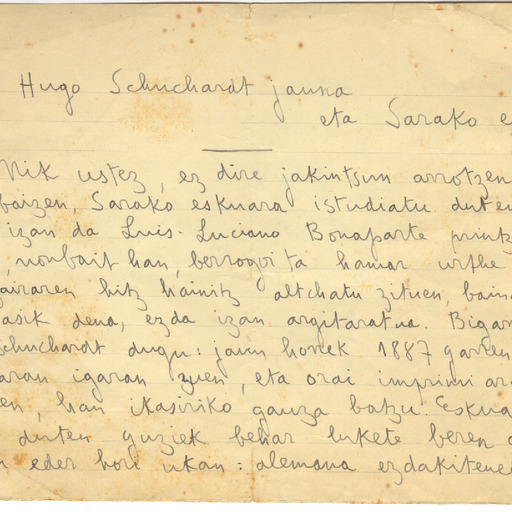 Hugo Schuchardt jauna
eta Sarako e
Nik ustez, ez dire jakintsun arrotzen
baizen, Sarako eskuara istudiatu duten
izan da Luis-Luciano Bonaparte printz
, nonbait han, berrogoi ta hamar urthe
airaren hitz hainitz altchatu zituen, bain
asik dena, ez da izan argitaratua. Bigar
Schuchardt dugu: jaun horrek 1887 garren
aran igaran zuen, eta orai imprimi ar
en, han ikasiriko gauza batzu. Eskua
duten guziek behar lukete beren
eder hori ukan: alemana ez dakitene